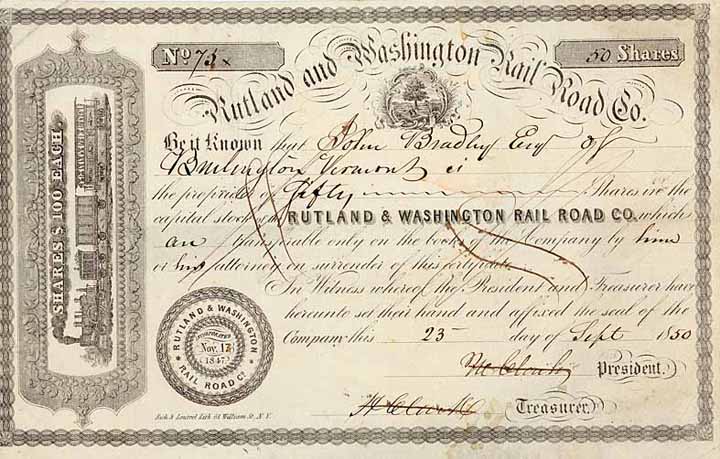 No 75
50 Shares
Rutland and Washington Rail Road Co.
SHARES $100 EACH
Be it Known that John Bradley Esq of
Burlington Vermont is
the proprietor of Fifty Shares in the
capital stock of the RUTLAND & WASHINGTON RAIL ROAD CO. which
are transferable only on the books of the Company by him
or his attorney on surrender of this certificate
In Witness whereof the President and Treasurer have
hereunto set their hand and affixed the seal of the
Company this 23 day of Sept 1850
President.
Treasurer.
RUTLAND & WASHINGTON
Nov. 13
1847
RAIL ROAD Co
William St, N.Y.